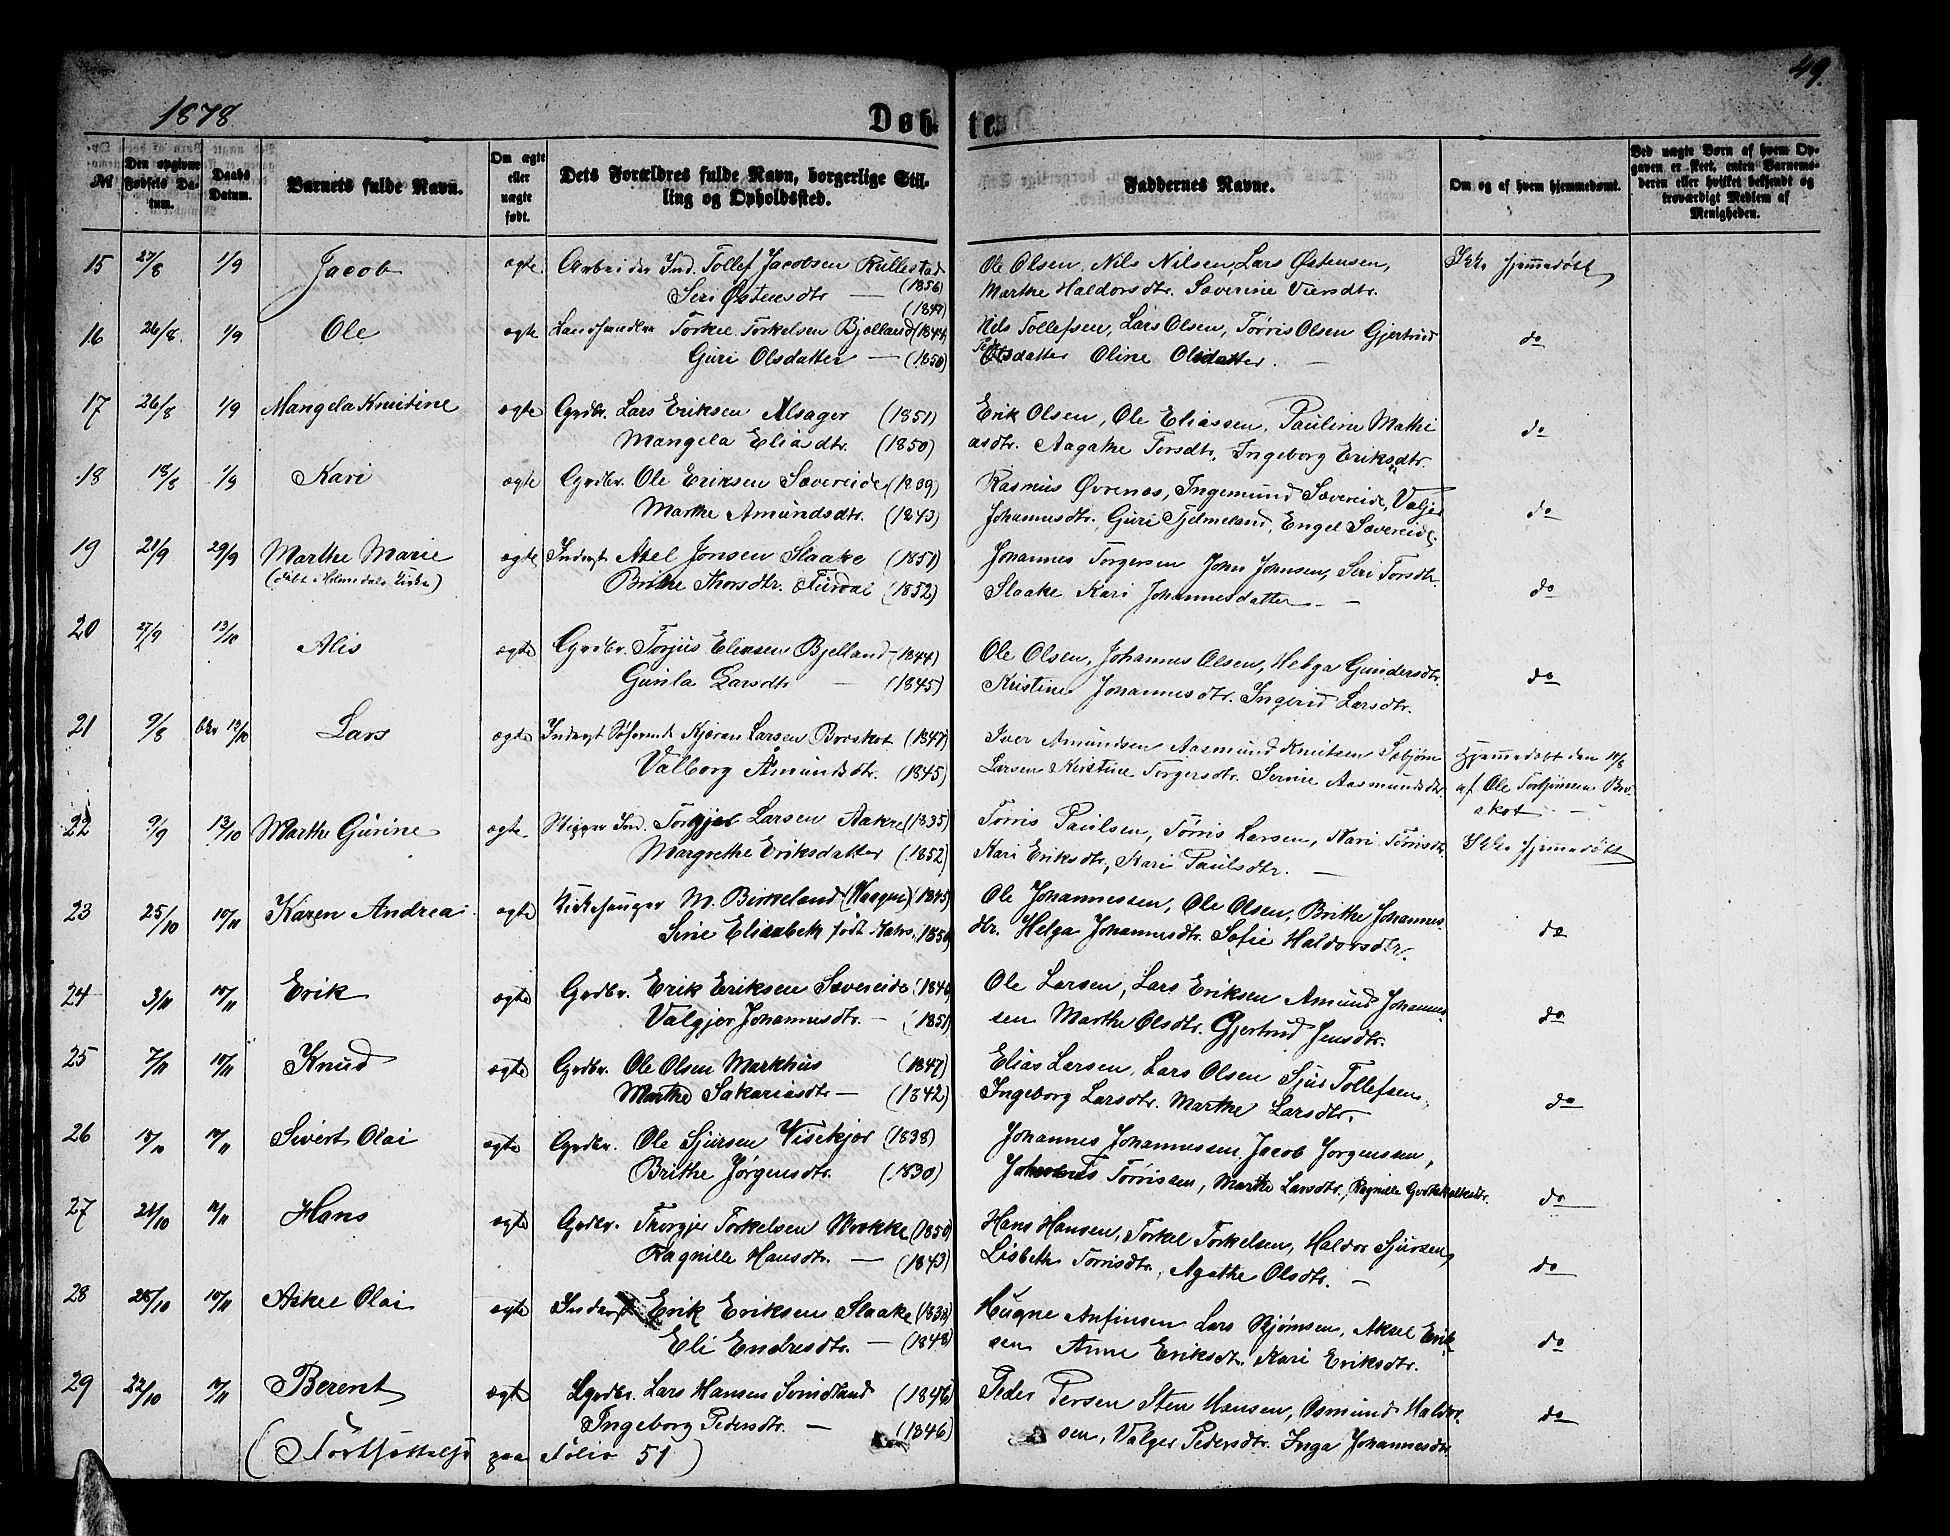 49.
1878
Døbte.
No
Den opgivne Fødsels Datum.
Daabs Datum.
Barnets fulde Navn.
Om ægte eller uægte født.
Dets Forældres fulde Navn, borgerlige Stilling og Opholdssted.
Faddernes Navne.
Om og af hvem hjemmedøbt.
Ved uægte Børn af hvem Opgaven er skeet, enten Barnemoderen eller hvilket bekjendt og troværdigt Medlem af Menigheden.
15 27/8 1/9 Jacob ægte Arbeider Ind. Tollef Jacobsen Rullestad (1856) Ole Olsen, Nils Nilsen, Lars Østensen, Ikke hjemmedøbt
Seri Østensdtr — (1847) Marthe Haldorsdtr. Severine Viersdtr.
16 26/8 1/9 Ole ægte Landhandler Torkel Torkelsen Bjelland (1844) Nils Tollefsen, Lars Olsen, Tørris Olsen Gjertrud do
Guri Olsdatter — (1850) Olsdatter Oline Olsdatter. —
17 26/8 1/9 Mangela Knutine ægte Grdbr. Lars Eriksen Alsager (1851) Erik Olsen, Ole Eliassen, Pauline Mathi do
Mangela Eliasdtr. (1850) asdtr. Aagathe Torsdtr, Ingeborg Eriksdtr.
18 18/8 1/9 Kari ægte Grdbr. Ole Eriksen Sævereide (1839) Rasmus Øvrenes, Ingemund Sævereide, Valgjer do
Marthe Amundsdtr. (1843) Johannesdtr. Guri Fjelmeland, Engel Sævereide.
19 21/9 29/9 Marthe Marie ægte Inderst Axel Jonsen Slaake (1851) Johannes Torgersen John Johnsen, Seri Torsdtr. do
(døbt i Holmedals Kirke) Brithe Thorsdtr. (1852) Slaake Kari Johannesdatter —
20 27/9 13/10 Alis ægte Grdbr. Torjus Eliasen Bjelland (1844) Ole Olsen, Johannes Olsen, Helga Gundersdtr. do
Gunla Larsdtr — (1845) Kristine Johannesdtr. Ingerid Larsdtr.
21 9/8 13/10 Lars ægte Inderst Kjæran Larsen Broskot (1847) Iver Amundsen Aasmund Knutsen Hjemmedøbt den 10/8
Valborg Åmundsdtr. (1845) Larsen Kristine Torgersdtr. Aasmundsdtr. af Ole Torbjørnsen Bro-
skot —
22 9/9 13/10 Marthe Gurine ægte Ind. Larsen Aakre (1835) Tørris Paulsen, Tørris Larsen, Kari Tørrisdtr. Ikke hjemmedøbt
Margrethe Eriksdatter (1852) Kari Eriksdtr, Kari Paulsdtr. —
23 25/10 10/11 Karen Andrea ægte Kirkesanger M. Birkeland (1845) Ole Johannessen, Ole Olsen, Brithe Johannes- do
Sirie Elisabeth født (1850) dtr. Helga Johannesdtr. Sofie Haldorsdtr.
24 3/11 10/11 Erik ægte Grdbr. Erik Eriksen Sævereide Ole Larsen, Lars Eriksen Amund Johannes- do
Valgjer Johannesdtr. — (1851) sen Marthe Olsdtr. Gjertrud Jensdtr.
25 7/11 10/11 Knud ægte Grdbr. Ole Olsen Markhus (1847) Elias Larsen, Lars Olsen Sjur Tollefsen, do
Marthe Sakariasdtr — (1842) Ingeborg Larsdtr. Marthe Larsdtr.
26 10/10 10/11 Sivert Olai ægte Grdbr. Ole Sjursen Vistekjør (1838) Johannes Johannessen, Jacob Jørgensen, do
Brithe Jørgensdtr. (1830) Johannes Tørrissen, Marthe Larsdtr.,
27 24/10 10/11 Hans ægte Grdbr. Thorgjer Torkelsen Mokke (1850) Hans Hansen, Torkel Torkelsen, Haldor Sjursen, do
Ragnille Hansdtr. — (1843) Lisbeth Tørrisdtr., Agathe Olsdtr. —
28 28/10 10/11 Askel Olai ægte Inderst Erik Eriksen Slaake Hugne Anfinsen Lars Bjørnsen, Aksel Erik- do
Eli Endresdtr. — (1848) sen Anne Eriksdtr. Kari Eriksdtr.
29 22/10 10/11 Berent ægte Grdbr. Lars Hansen Svindland (1846) Peder Persen Sten Hansen, Osmund Haldor- do
Ingeborg Pedersdtr. — (1846) sen, Valger Pedersdtr. Inga Johannesdtr
(Fortsættelse paa Folio 51)